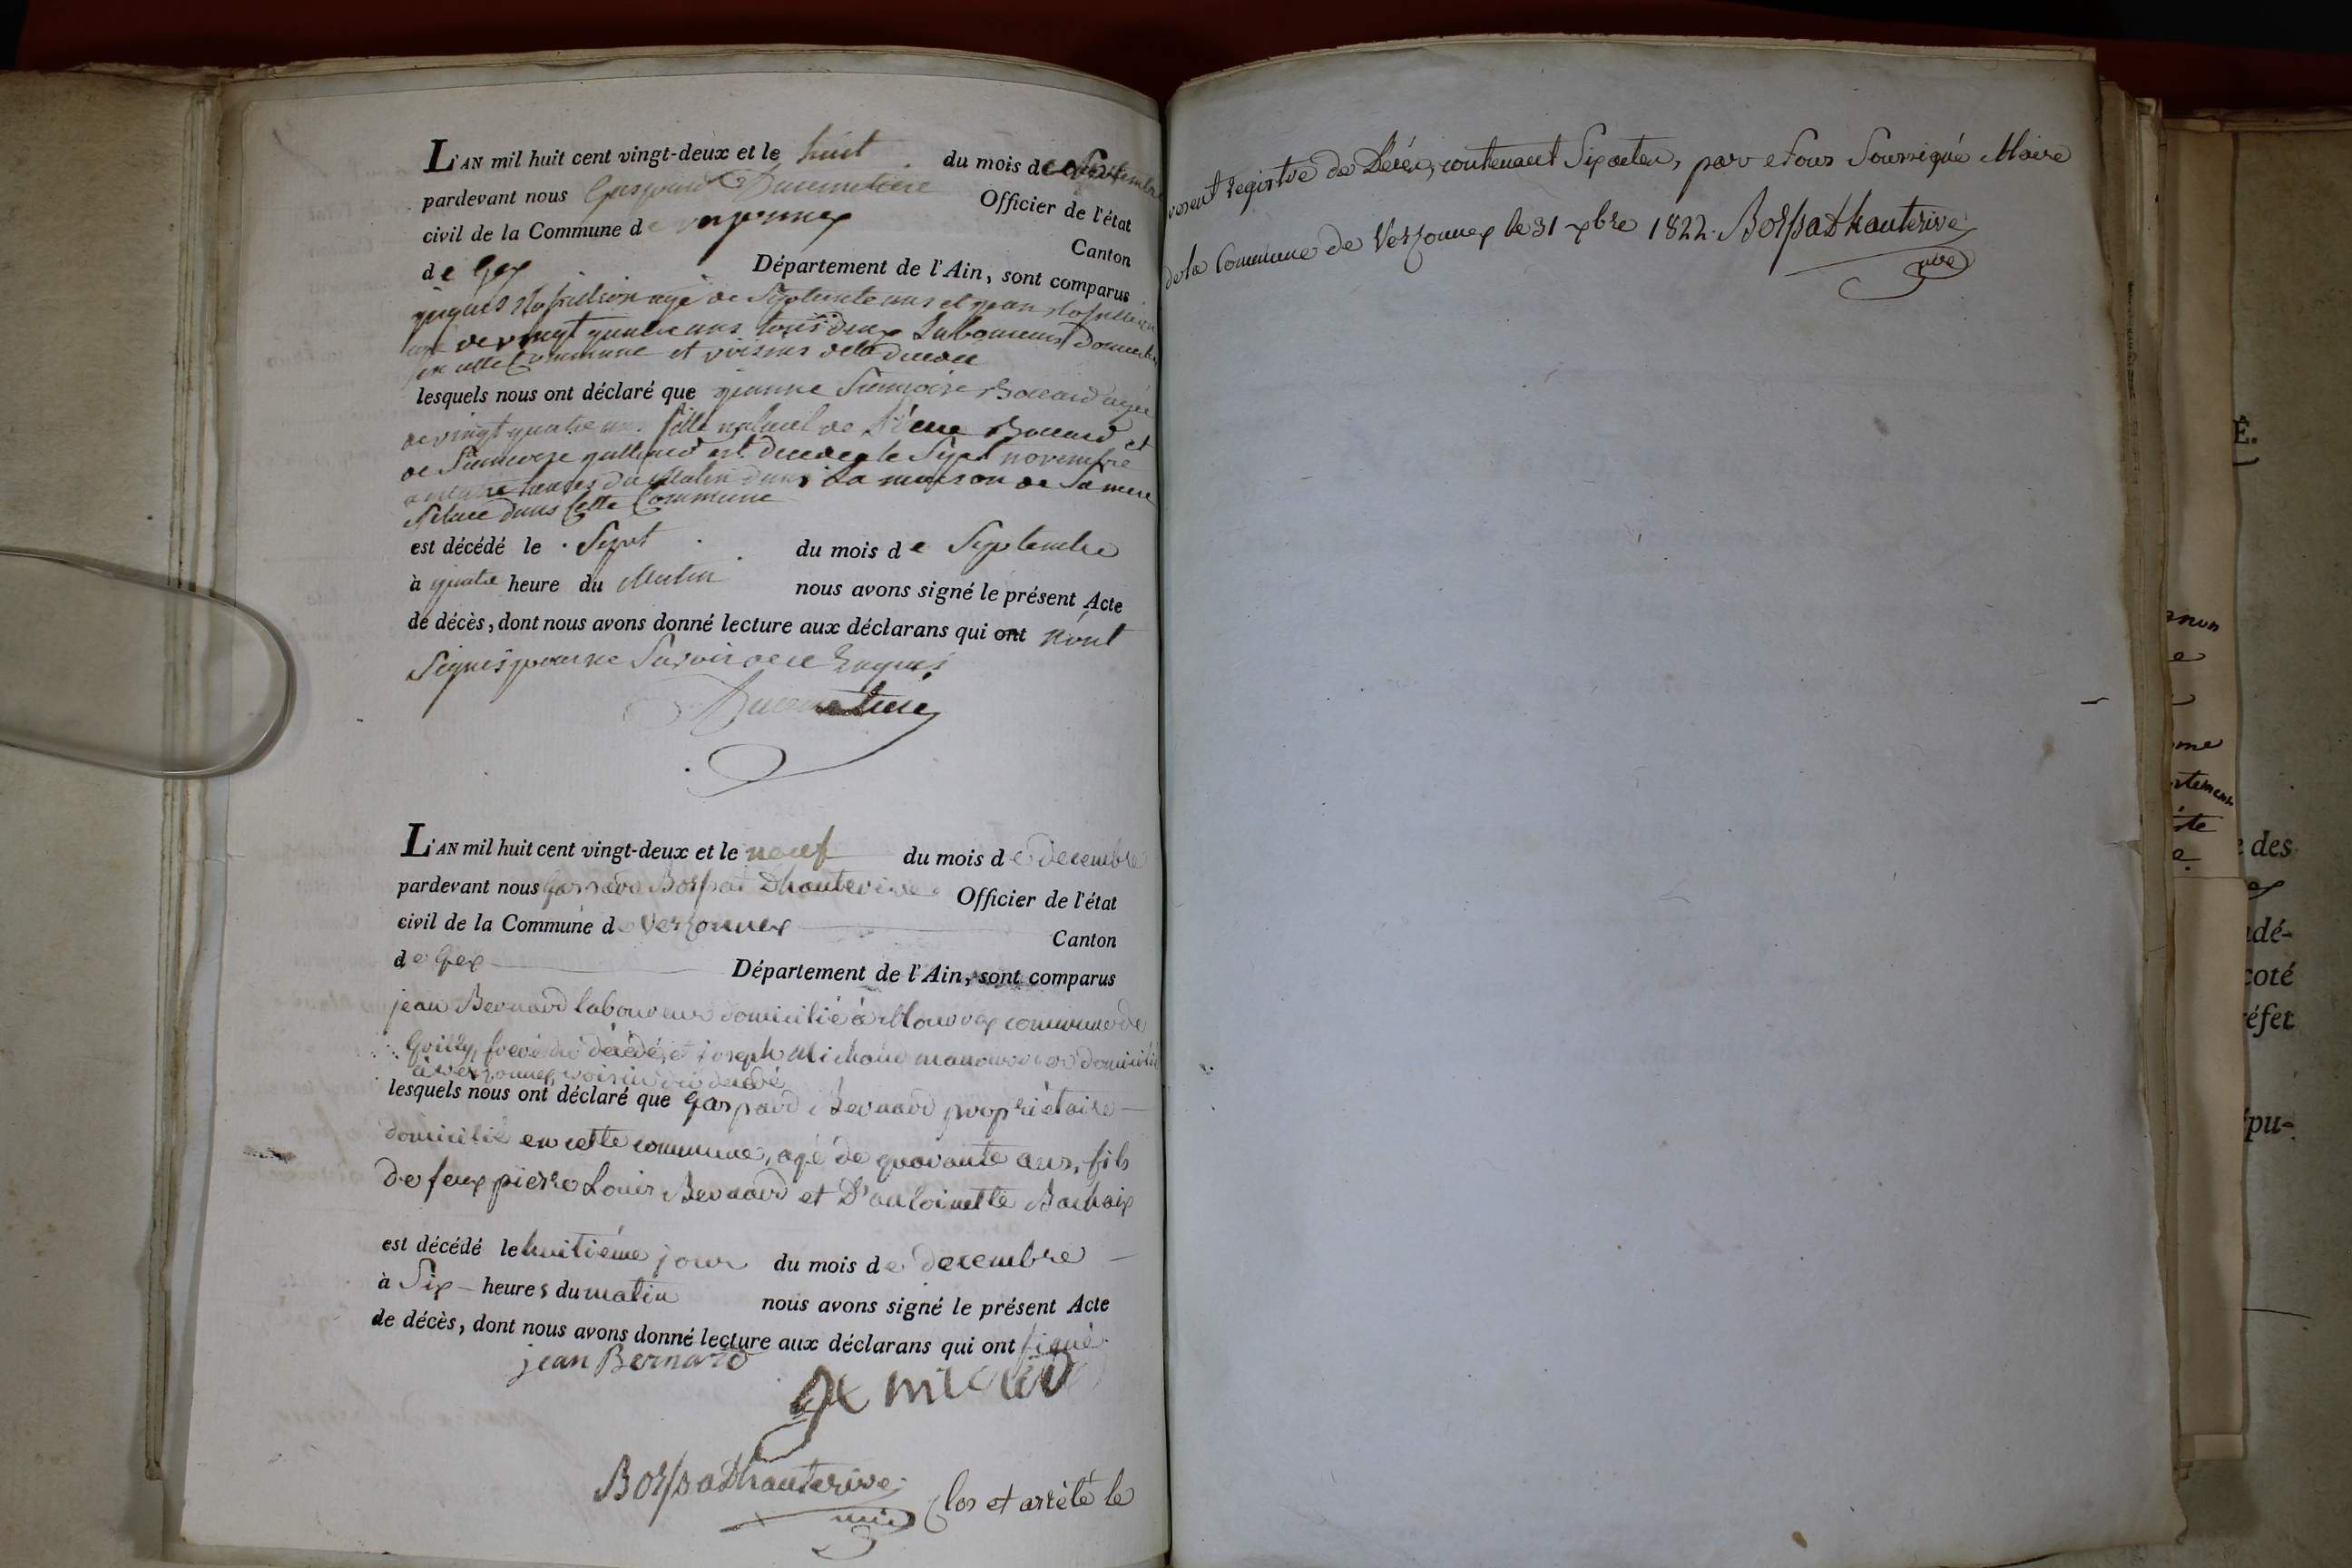 L'AN mil huit cent vingt-deux et le huit du mois de
pardevant nous Gaspard Ducimetière Officier de l'état
civil de la Commune de versonnex Canton
de Gex Département de l'Ain, sont comparus
agé de Septente ans et jean
agé de vingt quatre ans tous deux Laboureurs
en cette Commune et voisins de la
lesquels nous ont déclaré que jeanne françoise
de vingt quatre ans fille naturel de et
de françoise est le Sept novembre
heures du Matin dans La maison de Sa mere
Scituée dans Cette Commune
est décédé le Sept du mois de Septembre
à quatre heure du Matin nous avons signé le présent Acte
de décès, dont nous avons donné lecture aux déclarans qui ont n'ont
Signés pour ne Savoir de ce Enquis
Ducimetière
L'AN mil huit cent vingt-deux et le neuf du mois de decembre
pardevant nous Gaspard Borssat Dhauterive Officier de l'état
civil de la Commune de Versonnex Canton
de Gex Département de l'Ain, sont comparus
jean Bernard laboureur domicilié à Mourex commune de
Grilly, frère du décédé, et joseph Michaud manouvrier domicilié
à versonnex, voisin du décédé
lesquels nous ont déclaré que Gaspard Bernard propriétaire
domicilié en cette commune, agé de quarante ans, fils
de feux pierre Louis Bernard et D'antoinette Bachaix
est décédé le huitiéme jour du mois de decembre
à Six heures du matin nous avons signé le présent Acte
de décès, dont nous avons donné lecture aux déclarans qui ont signé.
jean Bernard
Borssat Dhauterive
Clos et arrêté le
present registre de Décès, contenant Six actes, par Nous Soussigné Maire
de la Commune de Versonnex le 31 xbre 1822. Borssat Dhauterive